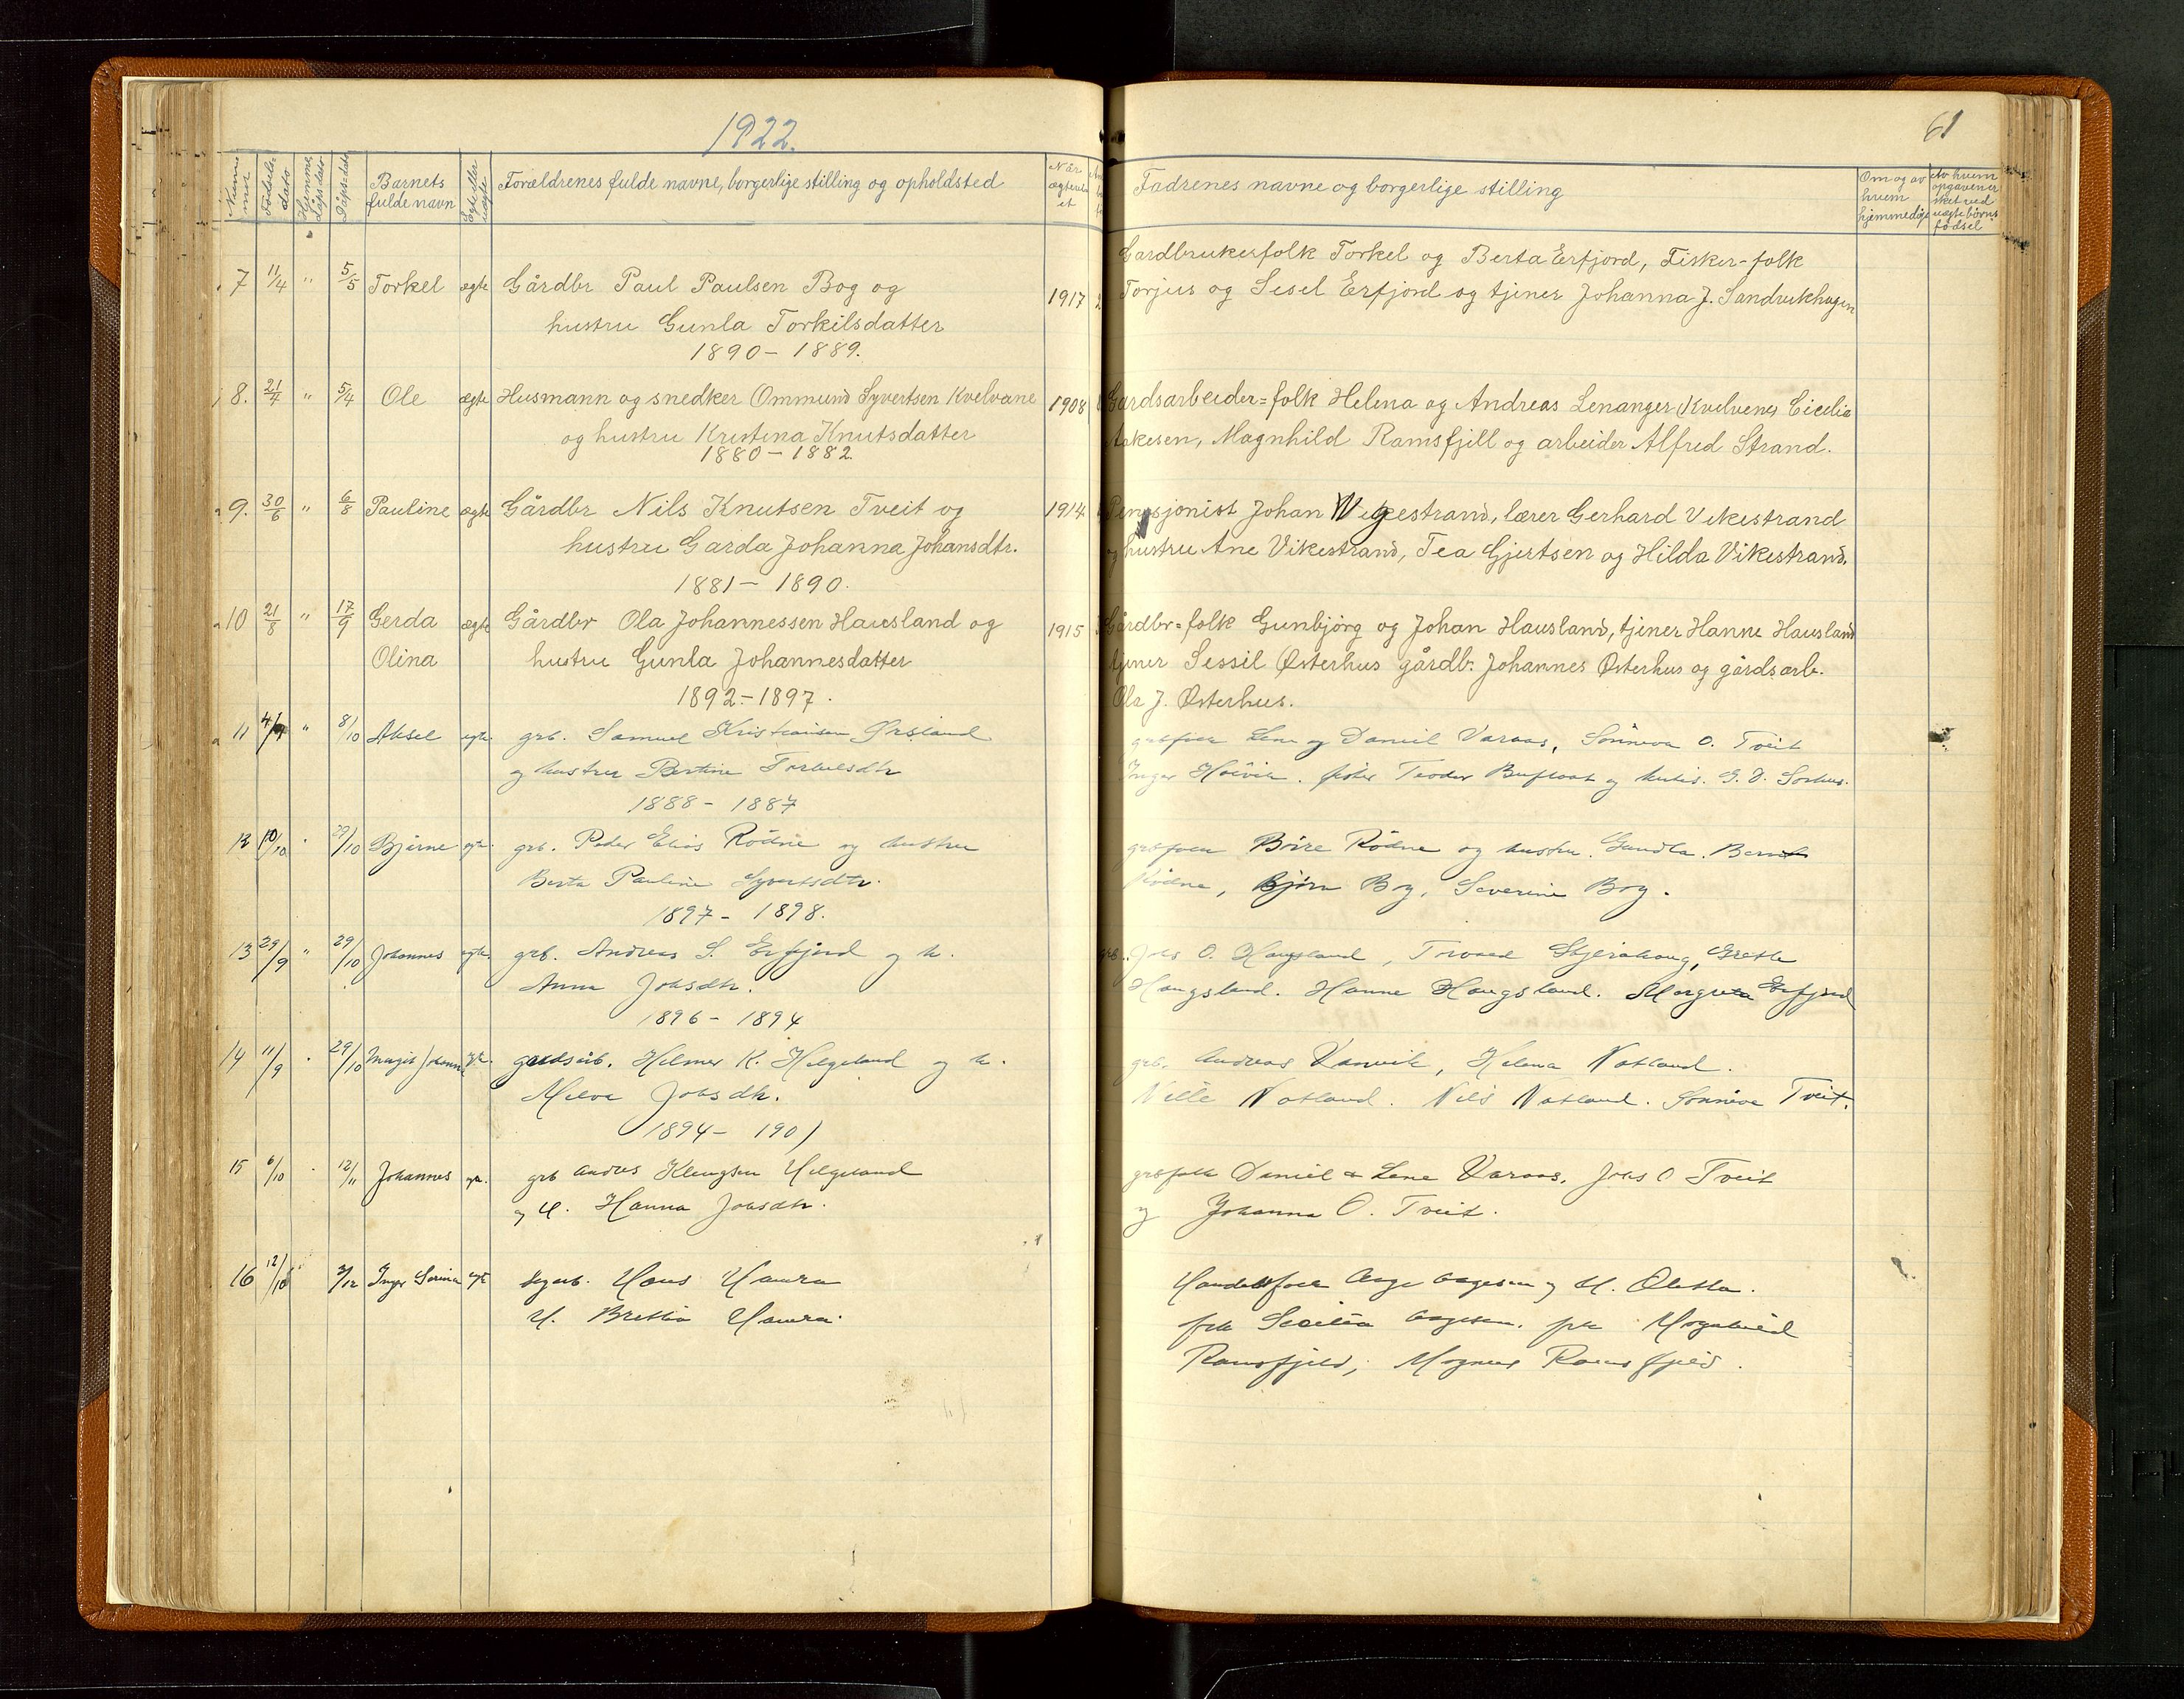 1922.
61
Nummer
Fødselsdato
Hjemmedåpsdato
Dåpsdato
Barnets fulde navn
Egte eller uegte
Forældrenes fulde navne, borgerlige stilling og opholdsted
Når egteviet
Fadrenes navne og borgerlige stilling
Om og av hvem hjemmedøpt
Av hvem opgaven er sket ved uegte børns fødsel
7 11/4 " 5/5 Torkel egte Gårdbr Paul Paulsen Bog og 1917
hustru Gunla Torkilsdatter
1890 - 1889.
Gardbrukerfolk Torkel og Berta Erfjord, Fisker-folk
Torjus og Sesel Erfjord og tjener Johanna J. Sandvikhagen
8. 21/4 " 5/4 Ole egte Husmann og snedker Ommund Syvertsen Kvelvane 1908
og hustru Kristina Knutsdatter
1880 - 1882.
Gardsarbeider=folk Helena og Andreas Lenanger Kvelvene, Cicelie
Aakesen, Magnhild Ramsfjell og arbeider Alfred Strand.
9. 30/6 " 6/8 Pauline egte Gårdbr Nils Knutsen Tveit og 1914
hustru Garda Johanna Johansdtr.
1881 - 1890.
Pensjonist Johan Vikestrand, lærer Gerhard Vikestrand
og hustru Ane Vikestrand, Tea Gjertsen og Hilda Vikestrand.
10 21/8 " 17/9 Gerda egte Gårdbr Ola Johannessen Hausland og 1915
Olina hustru Gunla Johannesdatter
1892 - 1897.
Gårdbr=folk Gunbjørg og Johan Hausland, tjener Hanne Hausland
tjener Sessil Østerhus gårdb. Johannes Østerhus og gårdsarb.
Ola J. Østerhus.
11 " 8/10 Aksel egte. grb. Samuel Kristiansen Ørsland
og hustru Bertine Torkelsdtr
1888 - 1887
Lene og Daniel Varaas, Sønneva O. Tveit
Inger
12 10/10 29/10 Bjarne egte. grb. Peder Elias Rødne og hustru
Berta Pauline Syvertsdtr.
1897 - 1898.
Børre Rødne og hustru Gundla. Bernt
Rødne, Bjørn Bog, Severine Bog.
13 29/9 " 29/10 Johannes egte. grb. Andreas S. Erfjord og h.
Anna Johsdtr.
1896 - 1894
grb. Johs O. Haugsland, Torvald Grethe
Haugsland. Hanne Haugsland. Margreta Erfjord
14 11/9 29/10 Margit Johanne egte. gardsarb. Helmer K. Helgeland og h.
Milva Johsdtr.
1894 - 1901
grb. Andreas Vanvik, Helena Natland.
Nille Natland. Nils Natland. Sønneva Tveit.
15 6/10 12/11 Johannes egte. grb Andres Klengsen Helgeland
og H. Hanna Johsdtr.
grbfolk Daniel & Lene Varaas, Johs O Tveit
og Johanna O. Tveit.
16 12/10 3/12 Inger Serina egte Hans Hamra
H. Brethe Hamra.
Handelsfolk Aage Aagesen og H. Oletta.
frk Secilia Aagesen. frk Magnhild
Ramsfjeld, Magnus Ramsfjeld.